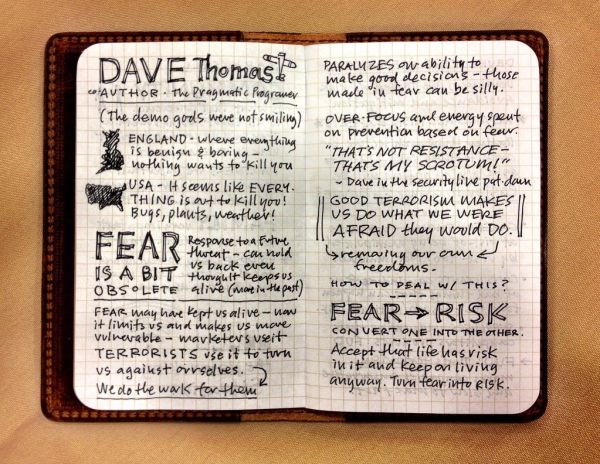 DAVE Thomas
co-AUTHOR · The Pragmatic Programer
(The demo gods were not smiling)
ENGLAND - where everything
is benign & boring -
nothing wants to kill you
USA - It seems like EVERY-
THING is out to kill you!
Bugs, plants, weather!
FEAR
IS A BIT
OBSOLETE
Response to a future
threat - can hold
us back even
though it keeps us
alive (more in the past)
FEAR may have kept us alive - now
it limits us and makes us more
vulnerable - marketers use it
TERRORISTS use it to turn
us against ourselves.
We do the work for them
PARALYZES our ability to
make good decisions - those
made in fear can be silly.
OVER-FOCUS and energy spent
on prevention based on fear.
"THAT'S NOT RESISTANCE-
THAT'S MY SCROTUM!"
~ Dave in the security line pat-down
GOOD TERRORISM MAKES
US DO WHAT WE WERE
AFRAID they would DO.
removing our own
freedoms.
HOW TO DEAL W/ THIS?
FEAR→RISK
CONVERT ONE INTO THE OTHER.
Accept that life has risk
in it and keep on living
anyway. Turn fear into RISK.